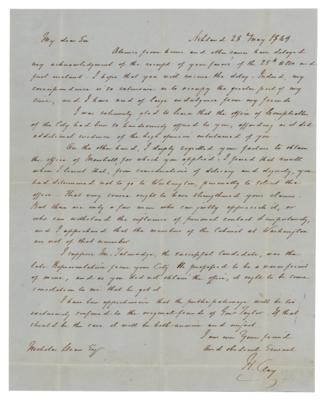 Ashland 28th May 1849
My dear Sir
Absence from home and other causes have delayed
my acknowledgment of the receipt of your favor of the 25th Ulto and
first instant. I hope that you will excuse the delay. Indeed, my
correspondence is so voluminous as to occupy the greater part of my
time, and I have need of large indulgence from my friends.
I was extremely glad to learn that the office of Comptroller
of the City had been so handsomely offered to you, affording as it did
additional evidence of the high opinion entertained of you.
On the other hand, I deeply regretted your failure to obtain
the office of Marshall for which you applied. I feared that result
when I learnt that, from considerations of delicacy and dignity, you
had determined not to go to Washington, personally to solicit the
office. That very cause ought to have strengthened your claims.
But there are only a few men who can justly appreciate it, or
who can withstand the influence of personal contact & importunity,
and I apprehend that the members of the Cabinet at Washington
are not of that number.
I suppose Mr. Talmadge, the successful candidate, was the
late Representative from your City. He professed to be a warm friend
of mine, and as you did not obtain the office, it ought to be some
consolation to me that he got it.
I have been apprehensive that the public patronage will be too
exclusively confined to the original friends of Genl Taylor. If that
should be the case it will be both unwise and unjust.
I am ever Your friend
And obedient Servant
H. Clay
Nicholas Dean Esq